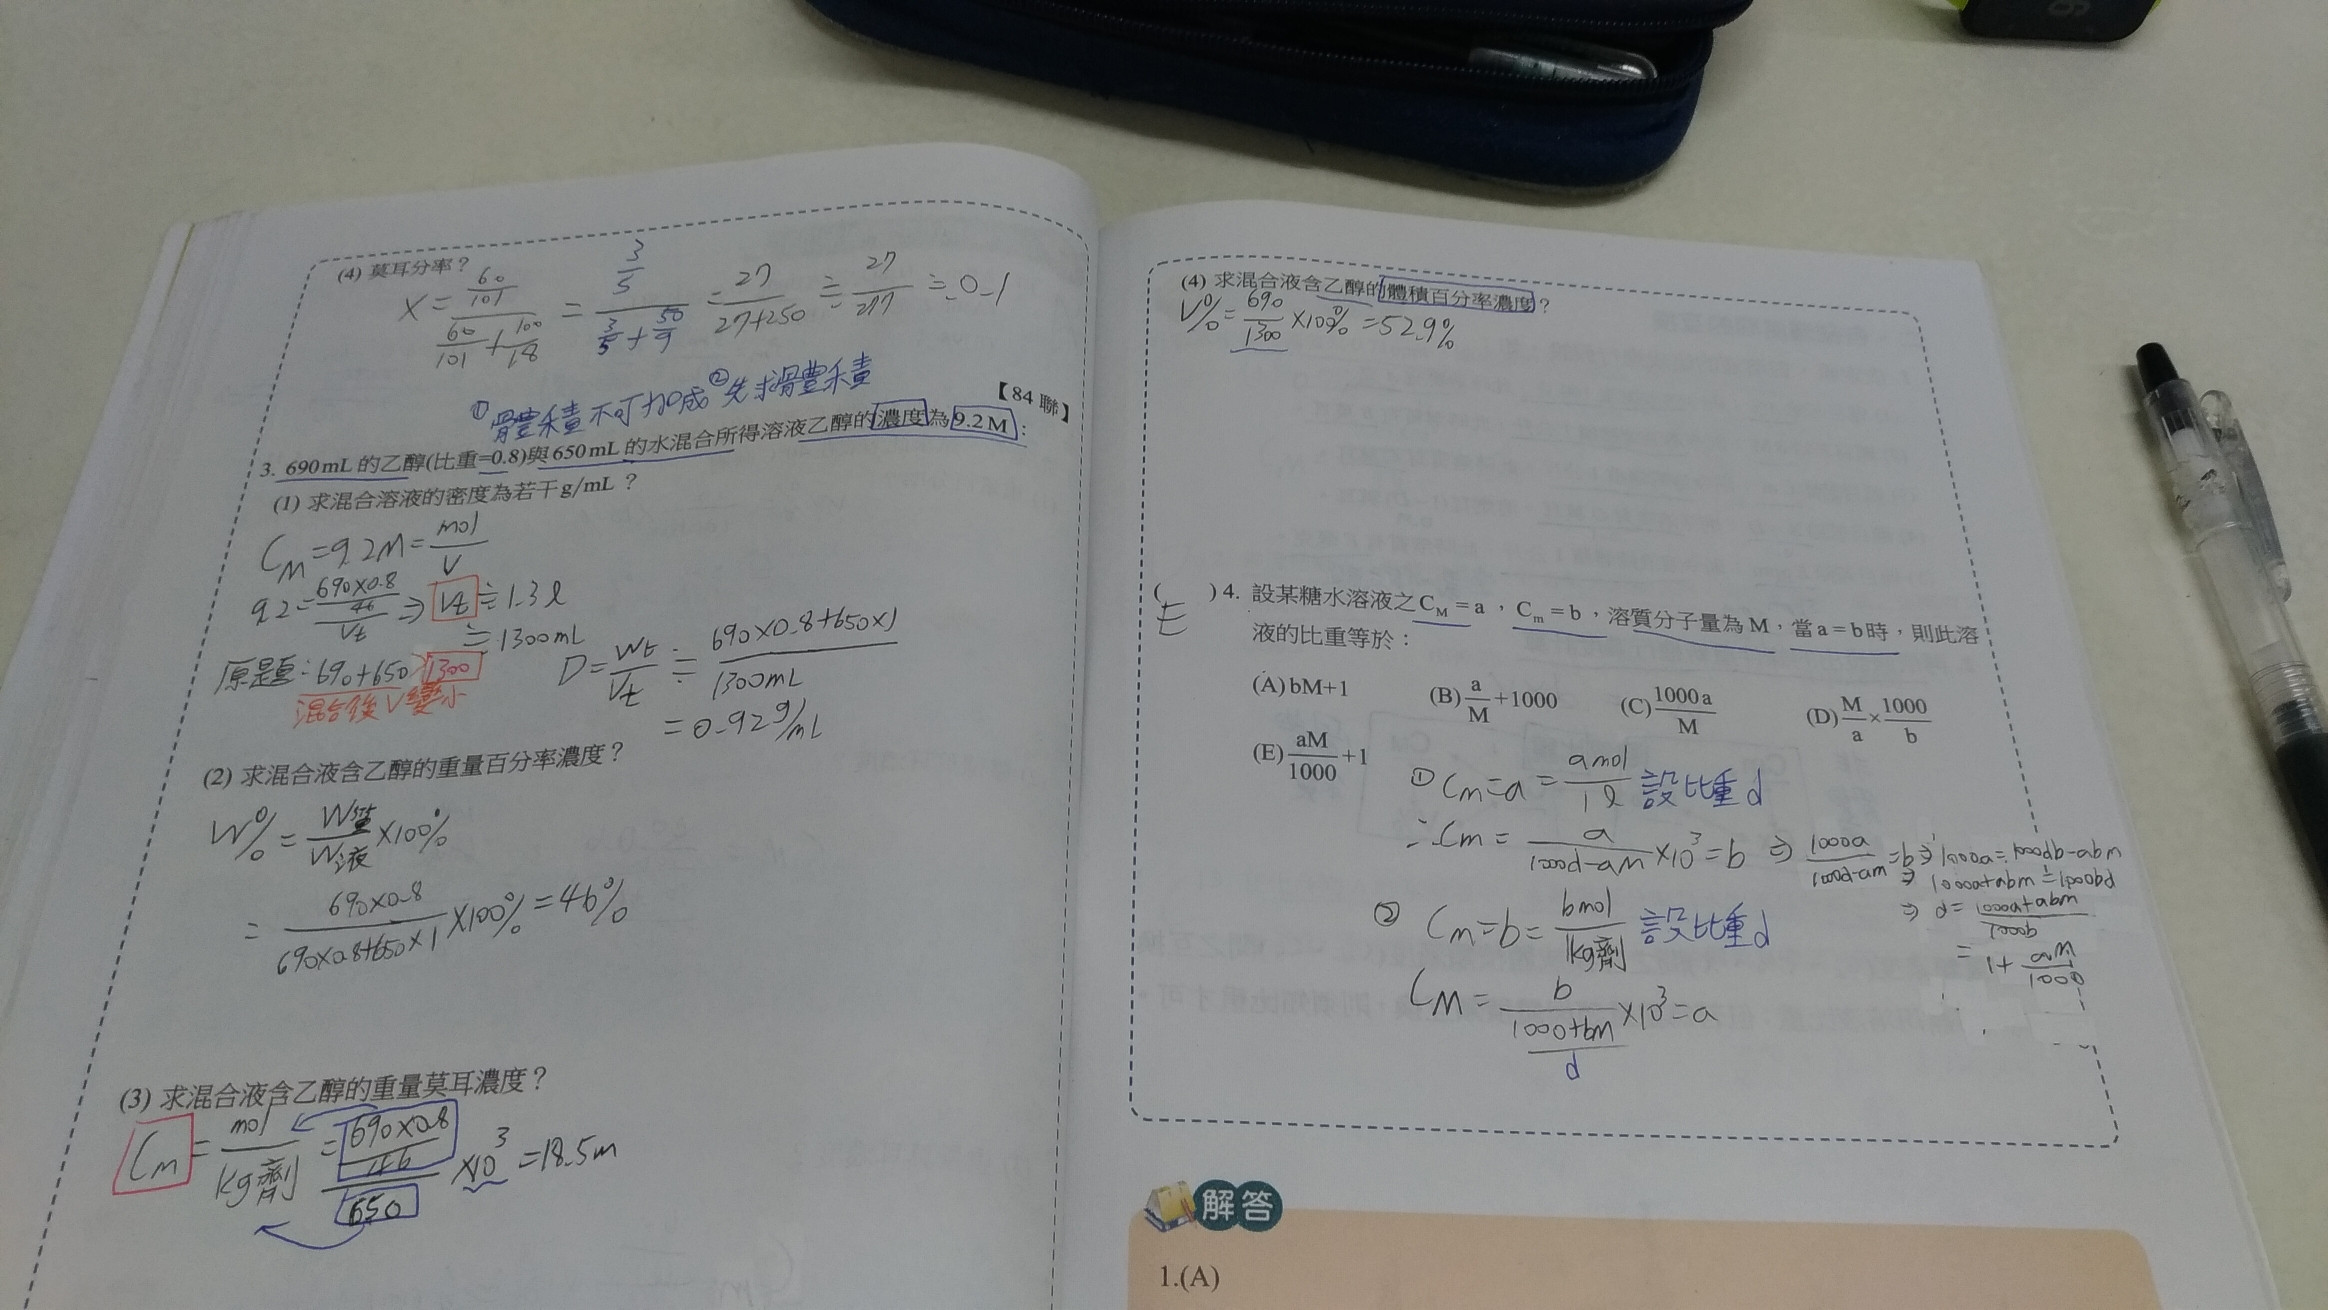 (4) 莫耳分率？
X = (60/101)/(60/101 + 100/18) = (3/5)/(3/5 + 50/9) = 27/(27+250) ≒ 27/277 ≒ 0.1
①體積不可加成 ②先求體積
【84 聯】
3. 690 mL 的乙醇(比重=0.8)與 650 mL 的水混合所得溶液乙醇的濃度為 9.2 M：
(1) 求混合溶液的密度為若干 g/mL？
C_M = 9.2M = mol/V
9.2 = (690×0.8/46)/Vt ⇒ Vt ≒ 1.3 l
≒ 1300 mL
原題：690+650 > 1300
混合後 V 變小
D = Wt/Vt ≒ (690×0.8+650×1)/1300mL
= 0.92 g/mL
(2) 求混合液含乙醇的重量百分率濃度？
W% = W質/W液 ×100%
= 690×0.8/(690×0.8+650×1) ×100% = 46%
(3) 求混合液含乙醇的重量莫耳濃度？
Cm = mol/kg劑 = (690×0.8/46)/650 ×10³ = 18.5m
(4) 求混合液含乙醇的體積百分率濃度？
V% = 690/1300 ×100% = 52.9%
( E ) 4. 設某糖水溶液之 C_M = a，C_m = b，溶質分子量為 M，當 a = b 時，則此溶
液的比重等於：
(A) bM+1 (B) a/M +1000 (C) 1000a/M (D) M/a × 1000/b
(E) aM/1000 +1
① C_M = a = a mol/1 l 設比重 d
∴ Cm = a/(1000d-aM) ×10³ = b ⇒ 1000a/(1000d-aM) = b ⇒ 1000a = 1000db-abM
⇒ 1000a+abM = 1000bd
⇒ d = (1000a+abM)/1000b
= 1+ aM/1000
② Cm = b = b mol/kg劑 設比重 d
C_M = b/((1000+bM)/d) ×10³ = a
解答
1.(A)